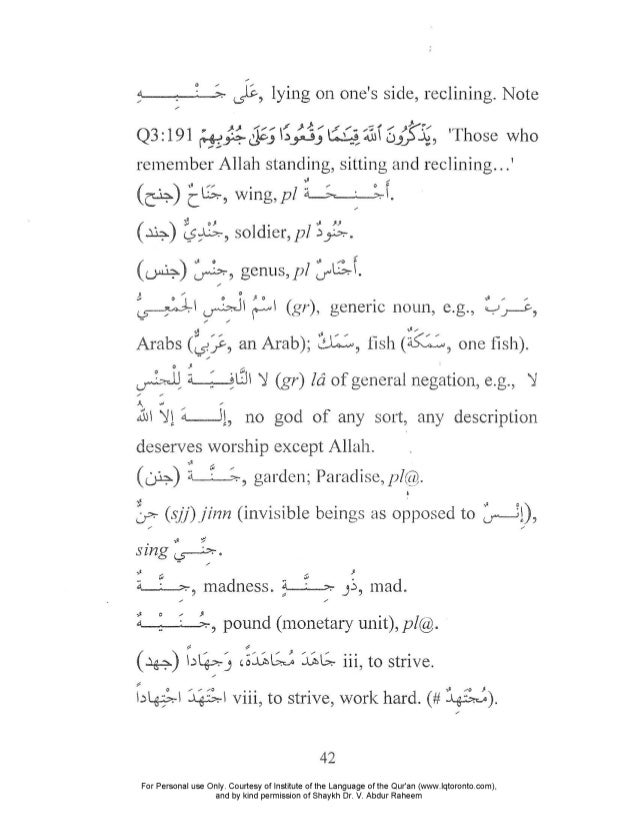 عَلَى جَنْبِهِ, lying on one's side, reclining. Note
Q3:191 يَذْكُرُونَ ٱللَّهَ قِيَـٰمًا وَقُعُودًا وَعَلَىٰ جُنُوبِهِمْ, 'Those who
remember Allah standing, sitting and reclining...'
(جنح) جَنَاحٌ, wing, pl أَجْنِحَةٌ.
(جند) جُنْدِيٌّ, soldier, pl جُنُودٌ.
(جنس) جِنْسٌ, genus, pl أَجْنَاسٌ.
اسْمُ الْجِنْسِ الْجَمْعِيُّ (gr), generic noun, e.g., عَرَبٌ,
Arabs (عَرَبِيٌّ, an Arab); سَمَكٌ, fish (سَمَكَةٌ, one fish).
لا النَّافِيَةُ لِلْجِنْسِ (gr) lâ of general negation, e.g., لا
إِلَهَ إِلاَّ اللهُ, no god of any sort, any description
deserves worship except Allah.
(جنن) جَنَّةٌ, garden; Paradise, pl@.
جِنٌّ (sjj) jinn (invisible beings as opposed to إِنْسٌ),
sing جِنِّيٌّ.
جِنَّةٌ, madness. ذُو جِنَّةٍ, mad.
جُنَيْهٌ, pound (monetary unit), pl@.
(جهد) جَاهَدَ مُجَاهَدَةً، وَجِهَاداً iii, to strive.
اجْتَهَدَ اجْتِهَاداً viii, to strive, work hard. (# مُجْتَهِدٌ).
42
For Personal use Only. Courtesy of Institute of the Language of the Qur'an (www.lqtoronto.com),
and by kind permission of Shaykh Dr. V. Abdur Raheem